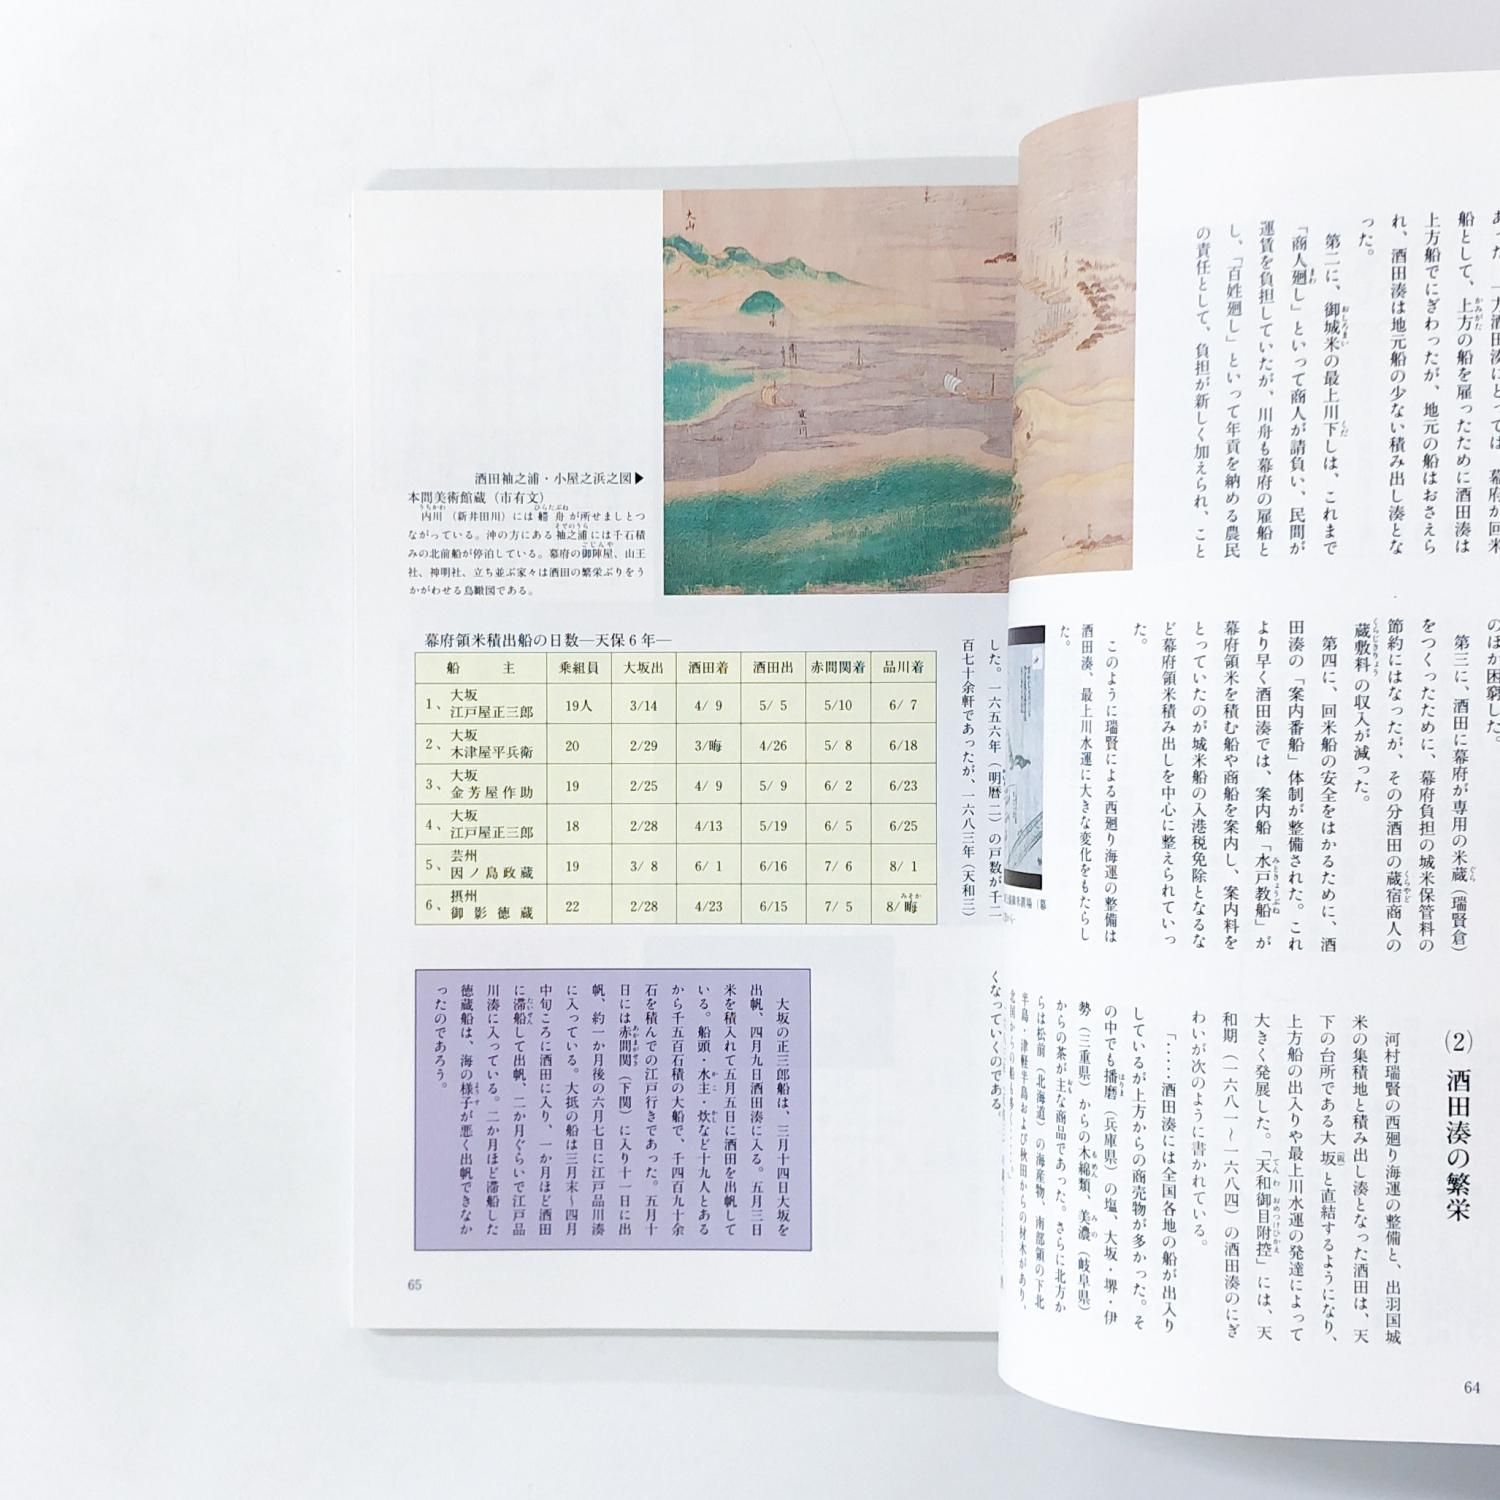 船として、上方の船を雇ったために酒田湊は
上方船でにぎわったが、地元の船はおさえら
れ、酒田湊は地元船の少ない積み出し湊とな
った。
第二に、御城米の最上川下しは、これまで
「商人廻し」といって商人が請負い、民間が
運賃を負担していたが、川舟も幕府の雇船と
し、「百姓廻し」といって年貢を納める農民
の責任として、負担が新しく加えられ、こと
のほか困窮した。
第三に、酒田に幕府が専用の米蔵（瑞賢倉）
をつくったために、幕府負担の城米保管料の
節約にはなったが、その分酒田の蔵宿商人の
蔵敷料の収入が減った。
第四に、回米船の安全をはかるために、酒
田湊の「案内番船」体制が整備された。これ
より早く酒田湊では、案内船「水戸教船」が
幕府領米を積む船や商船を案内し、案内料を
とっていたのが城米船の入港税免除となるな
ど幕府領米積み出しを中心に整えられていっ
た。
このように瑞賢による西廻り海運の整備は
酒田湊、最上川水運に大きな変化をもたらし
た。
(2) 酒田湊の繁栄
河村瑞賢の西廻り海運の整備と、出羽国城
米の集積地と積み出し湊となった酒田は、天
下の台所である大坂（阪）と直結するようになり、
上方船の出入りや最上川水運の発達によって
大きく発展した。「天和御目附控」には、天
和期（一六八一～一六八四）の酒田湊のにぎ
わいが次のように書かれている。
「……酒田湊には全国各地の船が出入り
しているが上方からの商売物が多かった。そ
の中でも播磨（兵庫県）の塩、大坂・堺・伊
勢（三重県）からの木綿類、美濃（岐阜県）
からの茶が主な商品であった。さらに北方か
らは松前（北海道）の海産物、南部領の下北
半島・津軽半島および秋田からの材木があり、
64
大山
酒田袖之浦・小屋之浜之図▶
本間美術館蔵（市有文）
内川（新井田川）には艜舟が所せましとつ
ながっている。沖の方にある袖之浦には千石積
みの北前船が停泊している。幕府の御陣屋、山王
社、神明社、立ち並ぶ家々は酒田の繁栄ぶりをう
かがわせる鳥瞰図である。
した。一六五六年（明暦二）の戸数が千二
百七十余軒であったが、一六八三年（天和三）
くなっていくのである。
幕府領米積出船の日数―天保6年―
船主 乗組員 大坂出 酒田着 酒田出 赤間関着 品川着
1、大坂 江戸屋正三郎 19人 3/14 4/9 5/5 5/10 6/7
2、大坂 木津屋平兵衛 20 2/29 3/晦 4/26 5/8 6/18
3、大坂 金芳屋作助 19 2/25 4/9 5/9 6/2 6/23
4、大坂 江戸屋正三郎 18 2/28 4/13 5/19 6/5 6/25
5、芸州 因ノ島政蔵 19 3/8 6/1 6/16 7/6 8/1
6、摂州 御影徳蔵 22 2/28 4/23 6/15 7/5 8/晦
大坂の正三郎船は、三月十四日大坂を
出帆、四月九日酒田湊に入る。五月三日
米を積入れて五月五日に酒田を出帆して
いる。船頭・水主・炊など十九人とある
から千五百石積の大船で、千四百九十余
石を積んでの江戸行きであった。五月十
日には赤間関（下関）に入り十一日に出
帆、約一か月後の六月七日に江戸品川湊
に入っている。大抵の船は三月末～四月
中旬ころに酒田に入り、一か月ほど酒田
に滞船して出帆、二か月ぐらいで江戸品
川湊に入っている。二か月ほど滞船した
徳蔵船は、海の様子が悪く出帆できなか
ったのであろう。
65